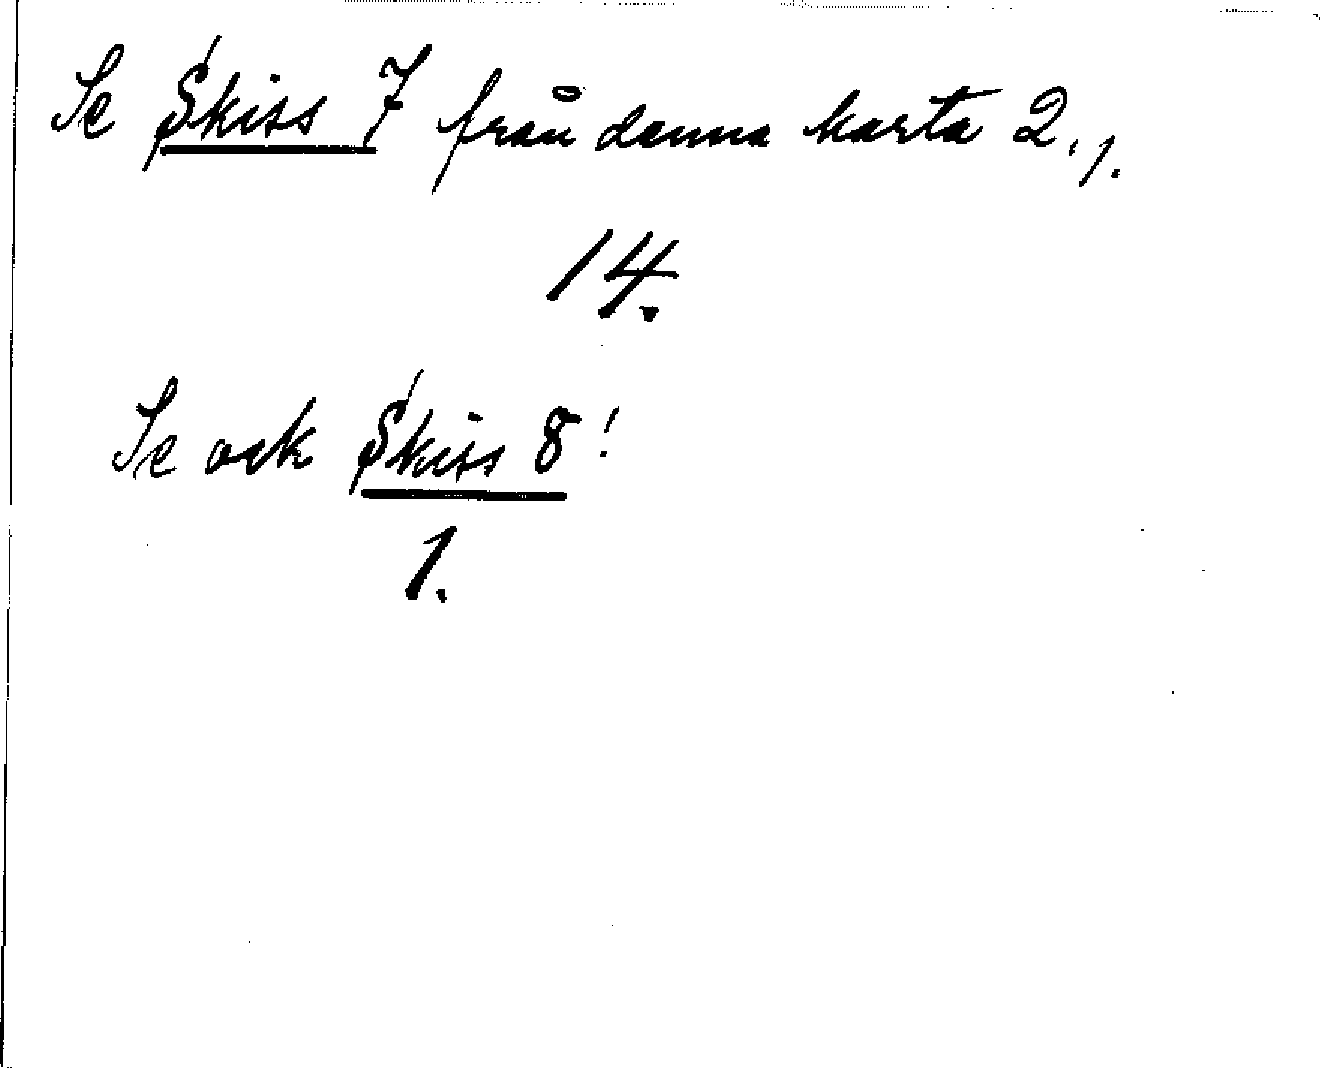 Se Skiss 7 från denna karta 2, 1.
14.
Se ock Skiss 8!
1.